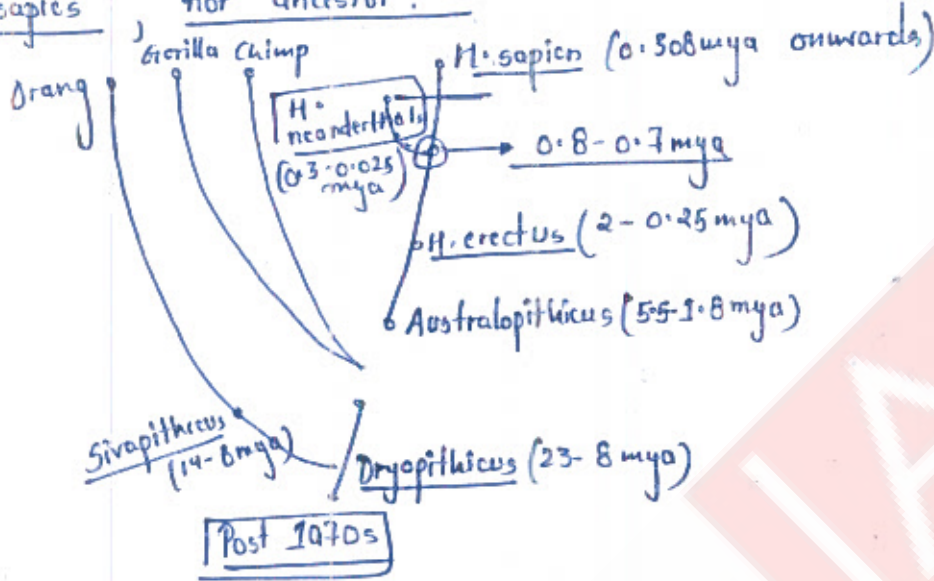 nor ancestor.
Gorilla Chimp
Orang
H. sapien (0.308 mya onwards)
H.
neanderthals
(0.3-0.025
mya)
0.8-0.7 mya
H. erectus (2-0.25 mya)
Australopithicus (5.5-1.8 mya)
Sivapithecus
(14-8 mya)
Dryopithicus (23-8 mya)
Post 1970s